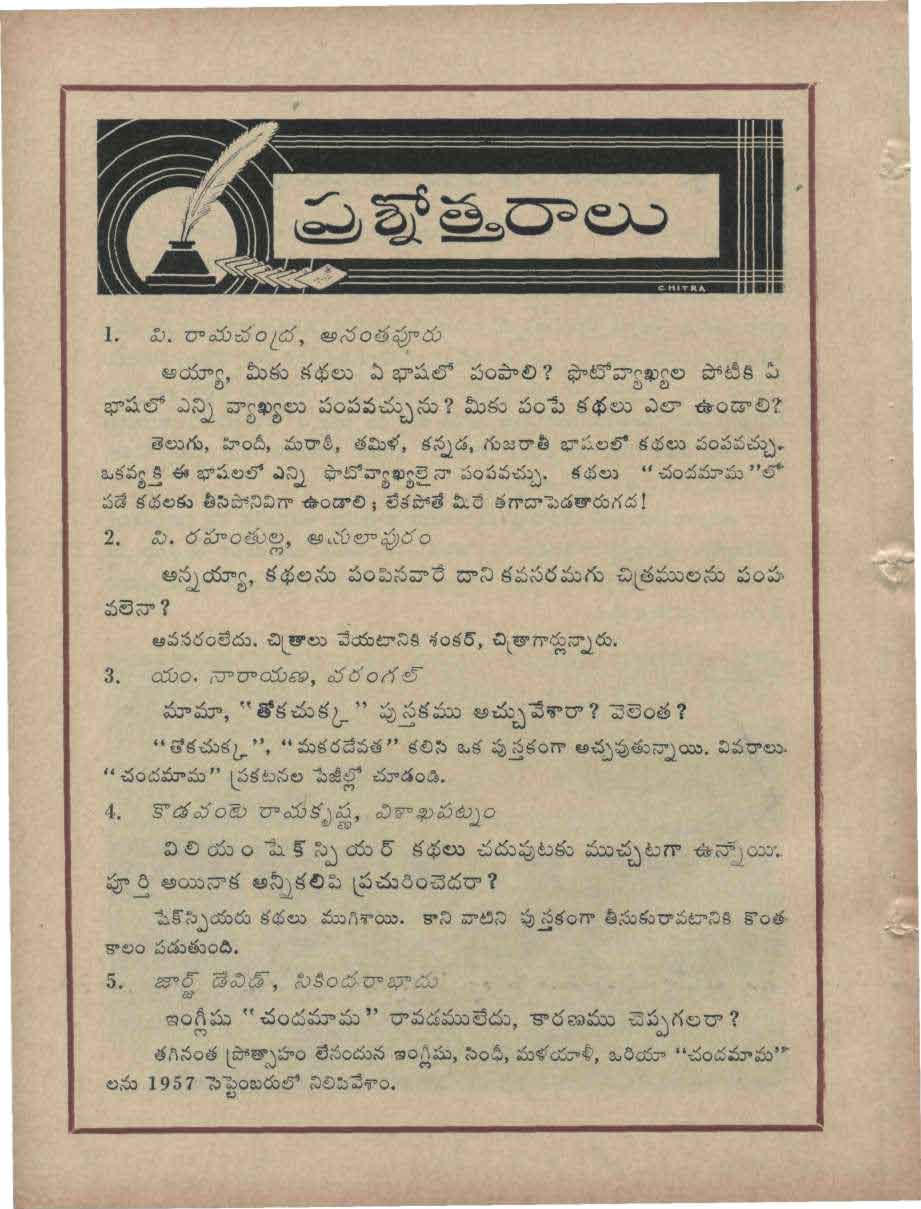 ప్రశ్నోత్తరాలు
CHITRA
1. వి. రామచంద్ర, అనంతపూరు
అయ్యా, మీకు కథలు ఏ భాషలో పంపాలి? ఫొటోవ్యాఖ్యల పోటీకి ఏ
భాషలో ఎన్ని వ్యాఖ్యలు పంపవచ్చును? మీకు పంపే కథలు ఎలా ఉండాలి?
తెలుగు, హిందీ, మరాఠీ, తమిళ, కన్నడ, గుజరాతీ భాషలలో కథలు పంపవచ్చు.
ఒకవ్యక్తి ఈ భాషలలో ఎన్ని ఫొటోవ్యాఖ్యలైనా పంపవచ్చు. కథలు "చందమామ"లో
పడే కథలకు తీసిపోనివిగా ఉండాలి; లేకపోతే మీరే తగాదాపెడతారుగద!
2. వి. రహంతుల్ల, అమలాపురం
అన్నయ్యా, కథలను పంపినవారే దాని కవసరమగు చిత్రములను పంప
వలెనా?
అవసరంలేదు. చిత్రాలు వేయటానికి శంకర్, చిత్రాగార్లున్నారు.
3. యం. నారాయణ, వరంగల్
మామా, "తోకచుక్క" పుస్తకము అచ్చువేశారా? వెలెంత?
"తోకచుక్క", "మకరదేవత" కలిసి ఒక పుస్తకంగా అచ్చవుతున్నాయి. వివరాలు
"చందమామ" ప్రకటనల పేజీల్లో చూడండి.
4. కొడవంటి రామకృష్ణ, విశాఖపట్నం
విలియం షేక్ స్పియర్ కథలు చదువుటకు ముచ్చటగా ఉన్నాయి.
పూర్తి అయినాక అన్నీకలిపి ప్రచురించెదరా?
షేక్‌స్పియరు కథలు ముగిశాయి. కాని వాటిని పుస్తకంగా తీసుకురావటానికి కొంత
కాలం పడుతుంది.
5. జార్జ్ డేవిడ్, సికిందరాబాదు
ఇంగ్లీషు "చందమామ" రావడములేదు, కారణము చెప్పగలరా?
తగినంత ప్రోత్సాహం లేనందున ఇంగ్లీషు, సింధీ, మళయాళీ, ఒరియా "చందమామ"
లను 1957 సెప్టెంబరులో నిలిపివేశాం.